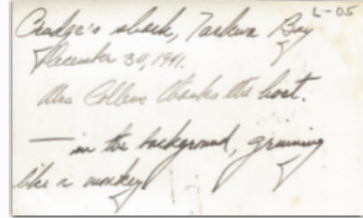 L-05
Cudge's shack, Tarkwa Bay
December 30, 1941.
Mrs Collens thanks the host.
— in the background, grinning
like a monkey